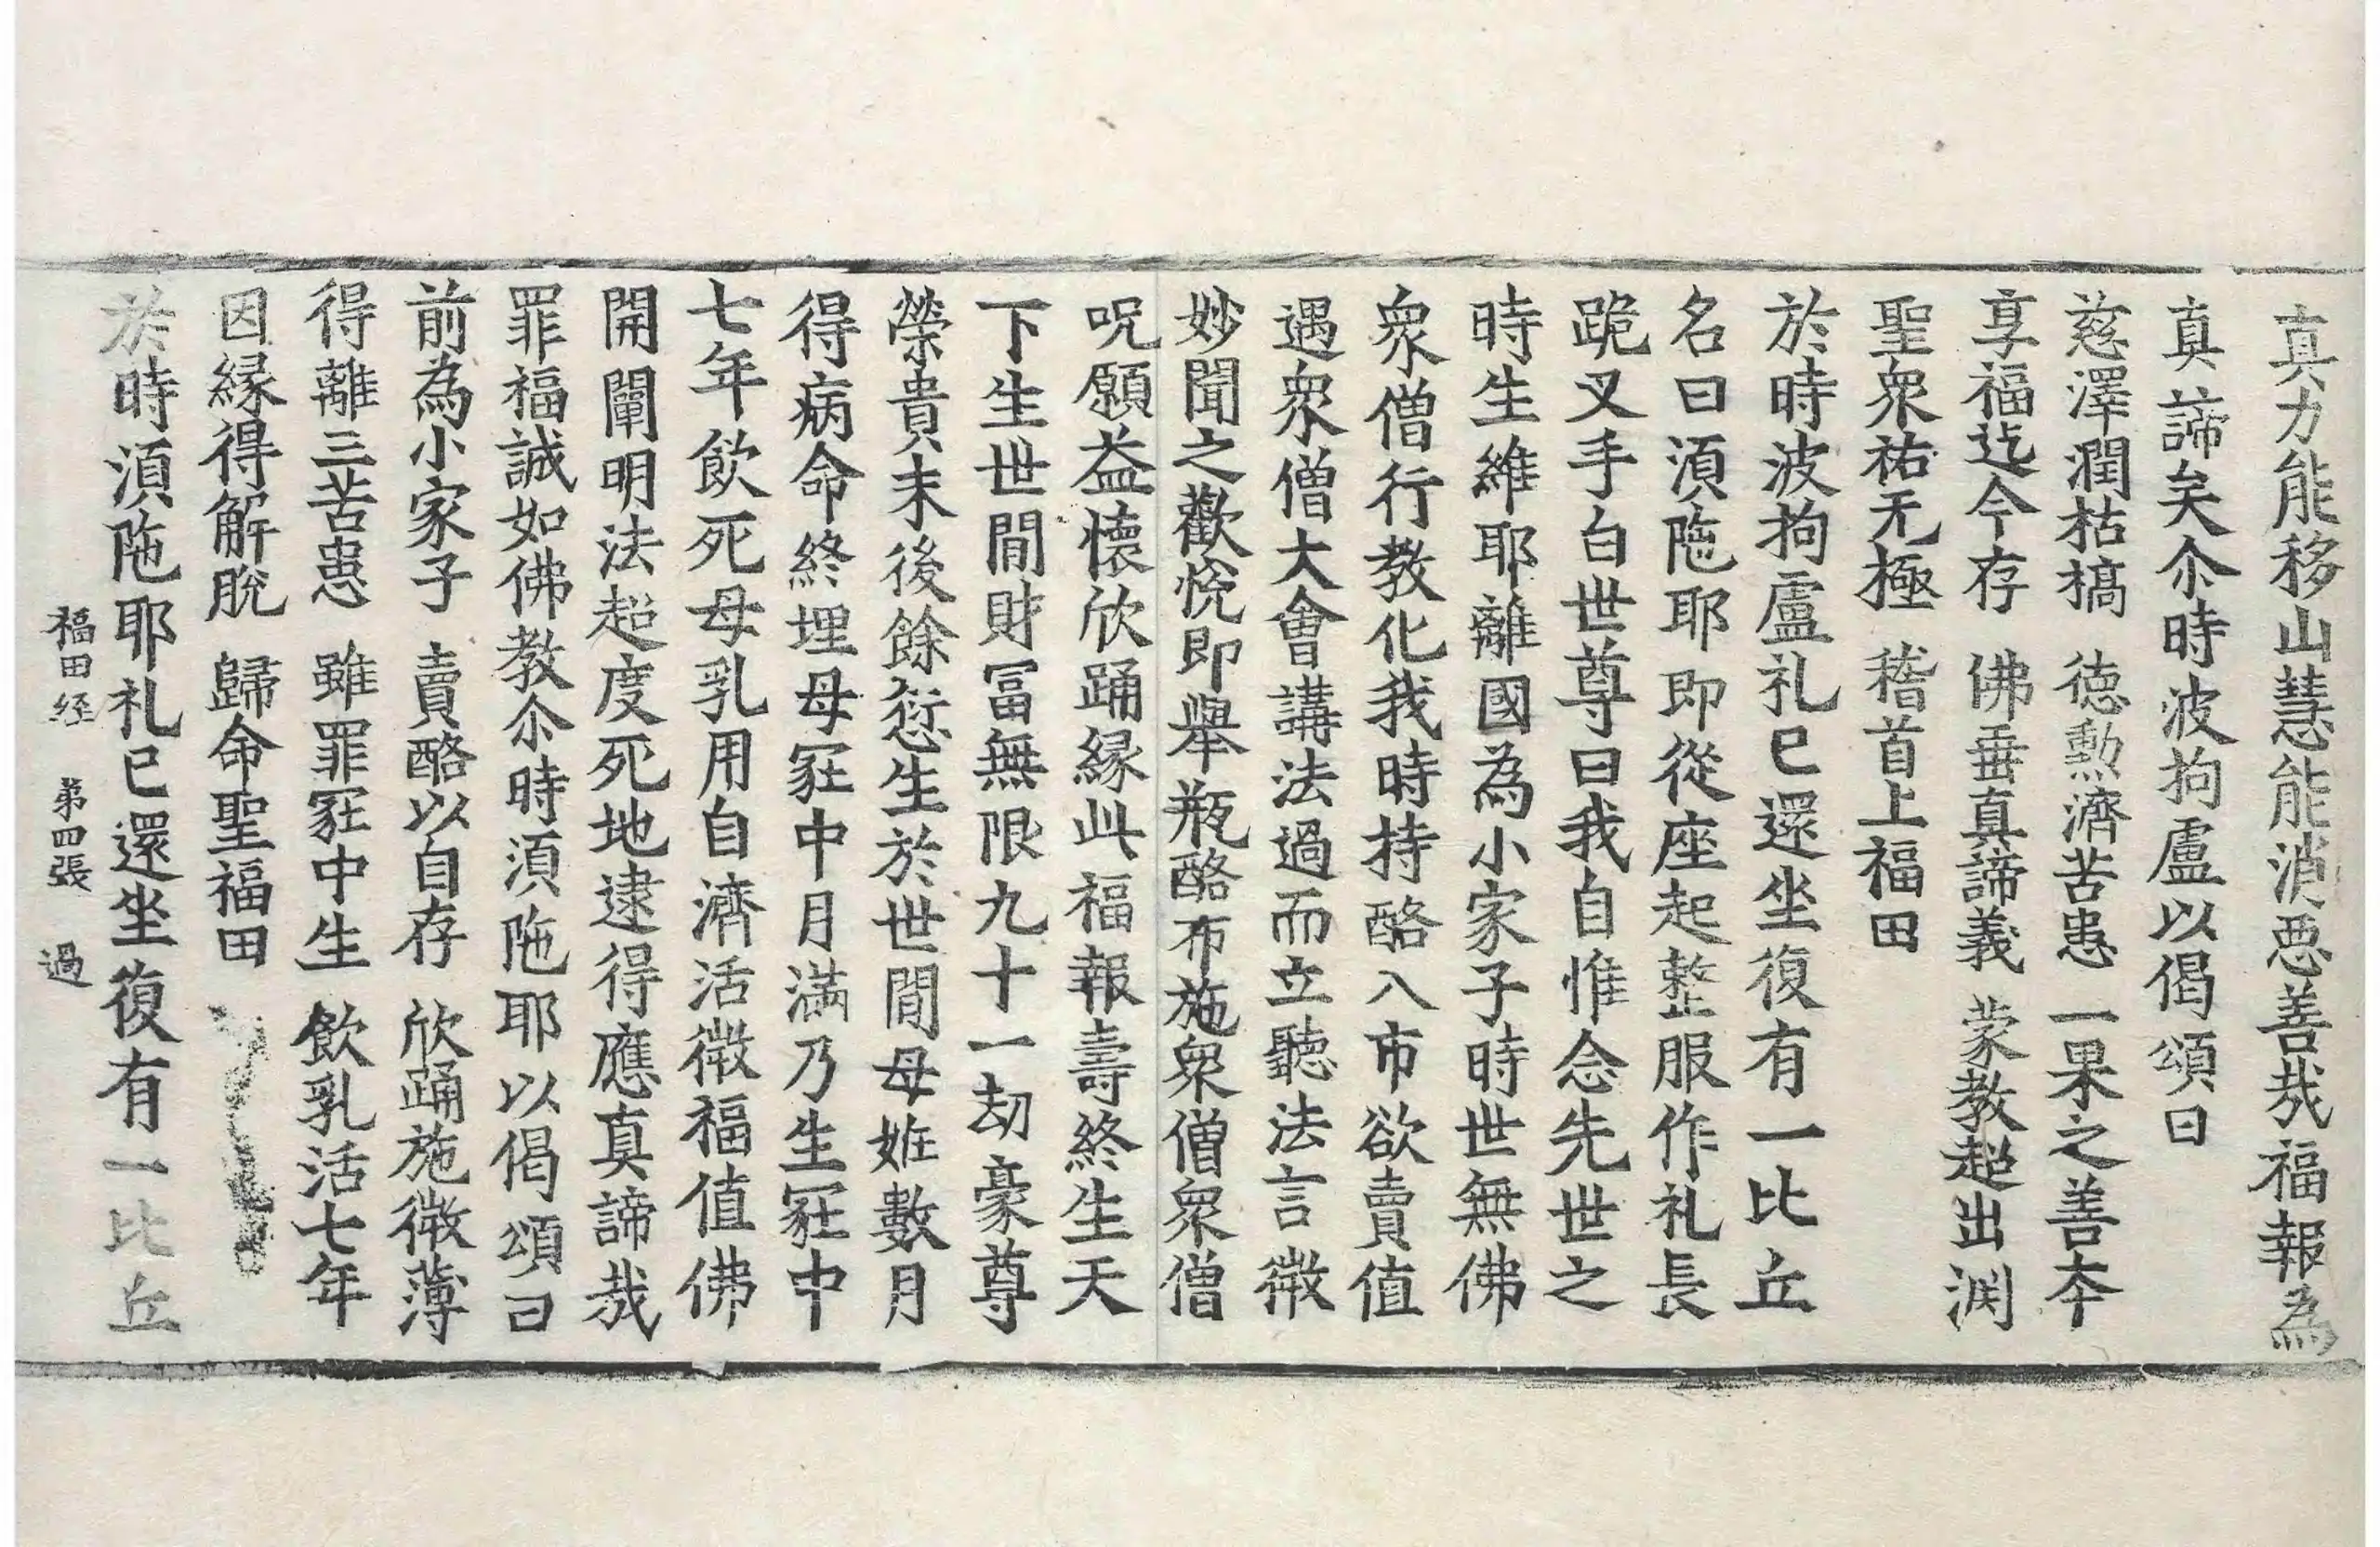 真力能移山慧能消惡善哉福報為
真諦矣尒時波拘盧以偈頌曰
慈澤潤枯槁　德勲濟苦患　一果之善夲
享福迄今存　佛垂真諦義　蒙教超出渕
聖衆祐无極　稽首上福田
於時波拘盧礼已還坐復有一比丘
名曰湏陁耶即從座起整服作礼長
跪叉手白世尊曰我自惟念先世之
時生維耶離國為小家子時世無佛
衆僧行教化我時持酪入市欲賣值
遇衆僧大會講法過而立聽法言微
妙聞之歡悅即舉瓶酪布施衆僧衆僧
呪願益懷欣踊緣此福報壽終生天
下生世間財冨無限九十一劫豪尊
榮貴末後餘愆生於世間母姙數月
得病命終埋母冡中月滿乃生冡中
七年飲死母乳用自濟活微福值佛
開闡明法超度死地逮得應真諦哉
罪福誠如佛教尒時湏陁耶以偈頌曰
前為小家子　賣酪以自存　欣踊施微薄
得離三苦患　雖罪冡中生　飲乳活七年
因緣得解脫　歸命聖福田
於時湏陁耶礼已還坐復有一比丘
福田经　弟四張　過